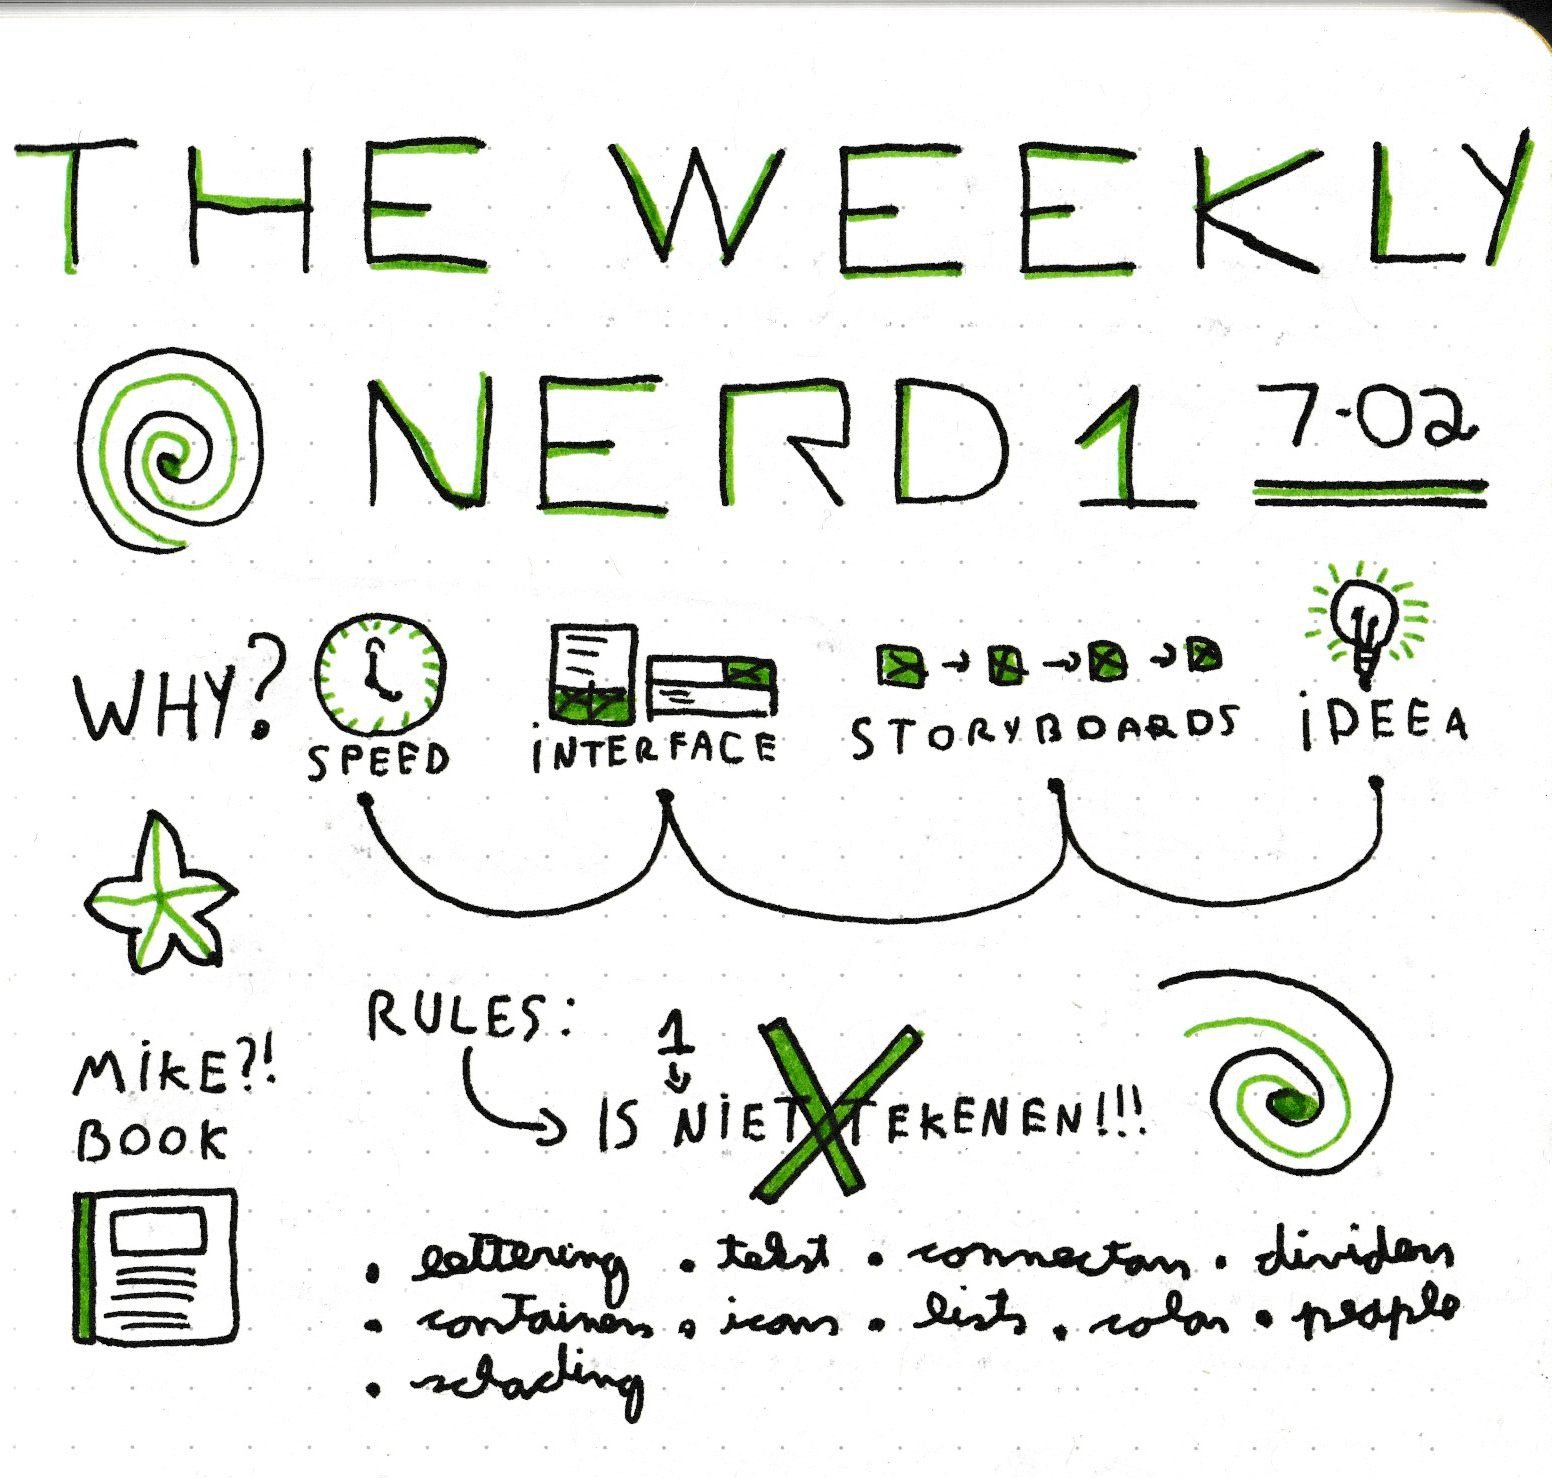 THE WEEKLY
NERD 1 7-02
WHY?
SPEED
iNTERFACE
STORYBOARDS
iDEEA
MiKE?!
BOOK
RULES:
1
IS NiET TEKENEN!!!
• lettering • tekst • connectors • dividers
• containers • icons • lists • color • people
• schading